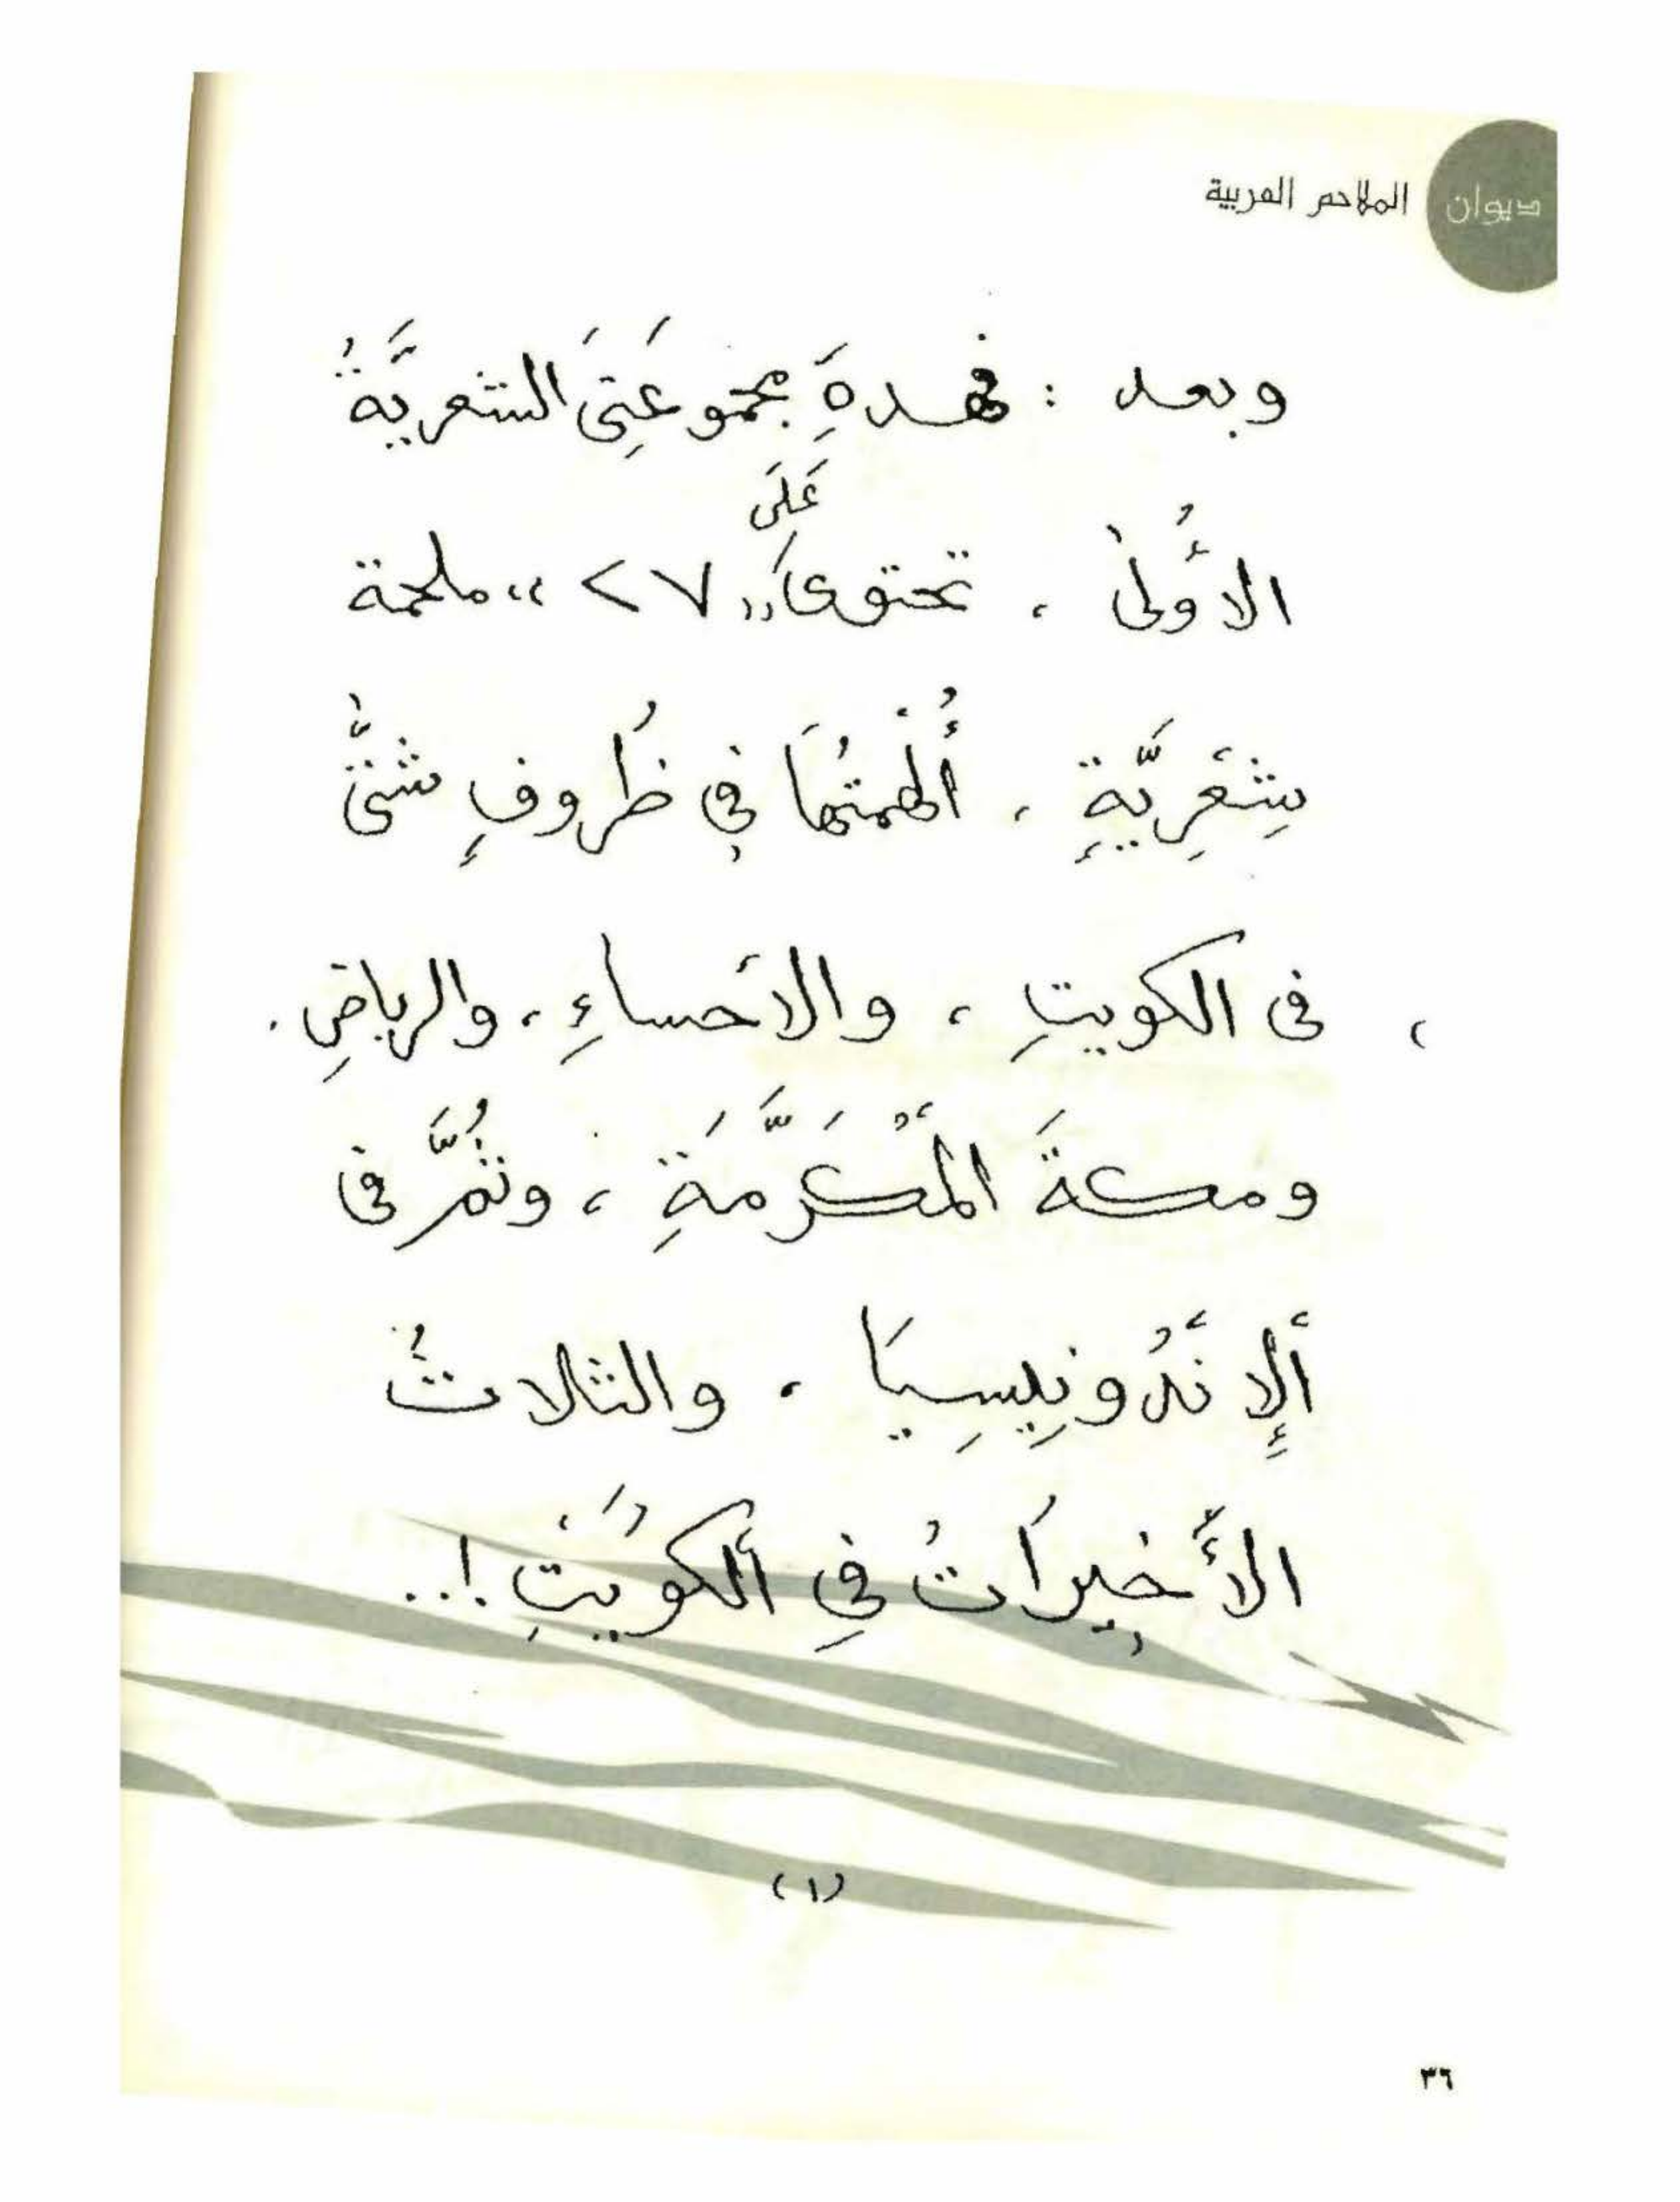 ديوان الملاحم العربية
وبعد : فهذهِ مجموعَتِىَ الشعريَّةُ
عَلَى
الأُولىٰ ، تحتوى «٢٧» ملحمة
شِعْرِيَّةٍ ، أُلْهِمتُهَا فِى ظُروفٍ شتىّٰ
، فى الكويتِ ، والأحساءِ ، والرياضِ .
ومكةَ المُكَرَّمَةِ ، وثُمَّ فى
ألإِندُونِيسِيَا ، والثلاثُ
الأَخِيرَاتُ فِى ألكُوَيْتِ !..
(١)
٣٦